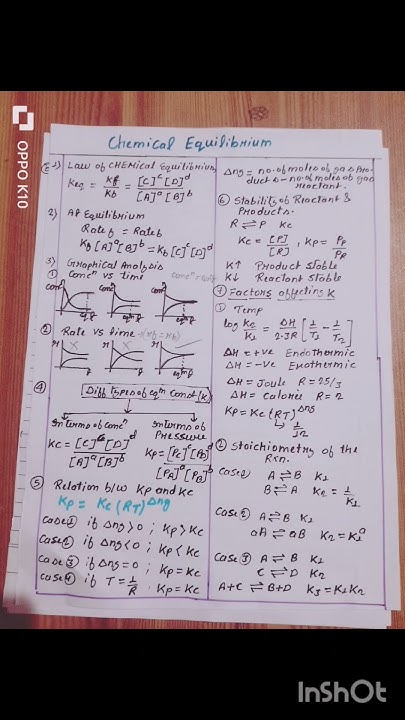 Chemical Equilibrium
1) Law of CHEMICAL Equilibrium
Keq = Kf/Kb = [C]^c [D]^d / [A]^a [B]^b
2) At Equilibrium
Rate f = Rate b
Kf [A]^a [B]^b = Kb [C]^c [D]^d
3) Graphical Analysis
① Conc^n vs time
Conc^n
Conc^n
Conc^n
② Rate vs time
④ Diff types of eq^m Const (K)
In terms of Conc^n
KC = [C]^c [D]^d / [A]^a [B]^b
In terms of Pressure
Kp = [PC]^c [PD]^d / [PA]^a [PB]^b
⑤ Relation b/w Kp and Kc
Kp = Kc (RT)^Δng
Case① if Δng > 0 ; Kp > Kc
Case② if Δng < 0 ; Kp < Kc
Case③ if Δng = 0 ; Kp = Kc
Case④ if T = 1/R Kp = Kc
Δng = no. of moles of gas Pro-
ducts - no. of moles of gas
reactant.
⑥ Stability of Reactant &
Products.
R ⇌ P Kc
Kc = [P]/[R] , Kp = PP/PR
K↑ Product Stable
K↓ Reactant Stable
Factors affecting K
① Temp
log K2/K1 = ΔH/2.3R [1/T1 - 1/T2]
ΔH = +ve Endothermic
ΔH = -ve Exothermic
ΔH = Joule R = 25/3
ΔH = Calorie R = 2
Kp = Kc (RT)^Δng
Stoichiometry of the
Rxn.
Case① A ⇌ B K1
B ⇌ A K2 = 1/K1
Case② A ⇌ B K1
aA ⇌ aB K2 = K1^a
Case③ A ⇌ B K1
C ⇌ D K2
A+C ⇌ B+D K3 = K1K2
OPPO K10
InShOt